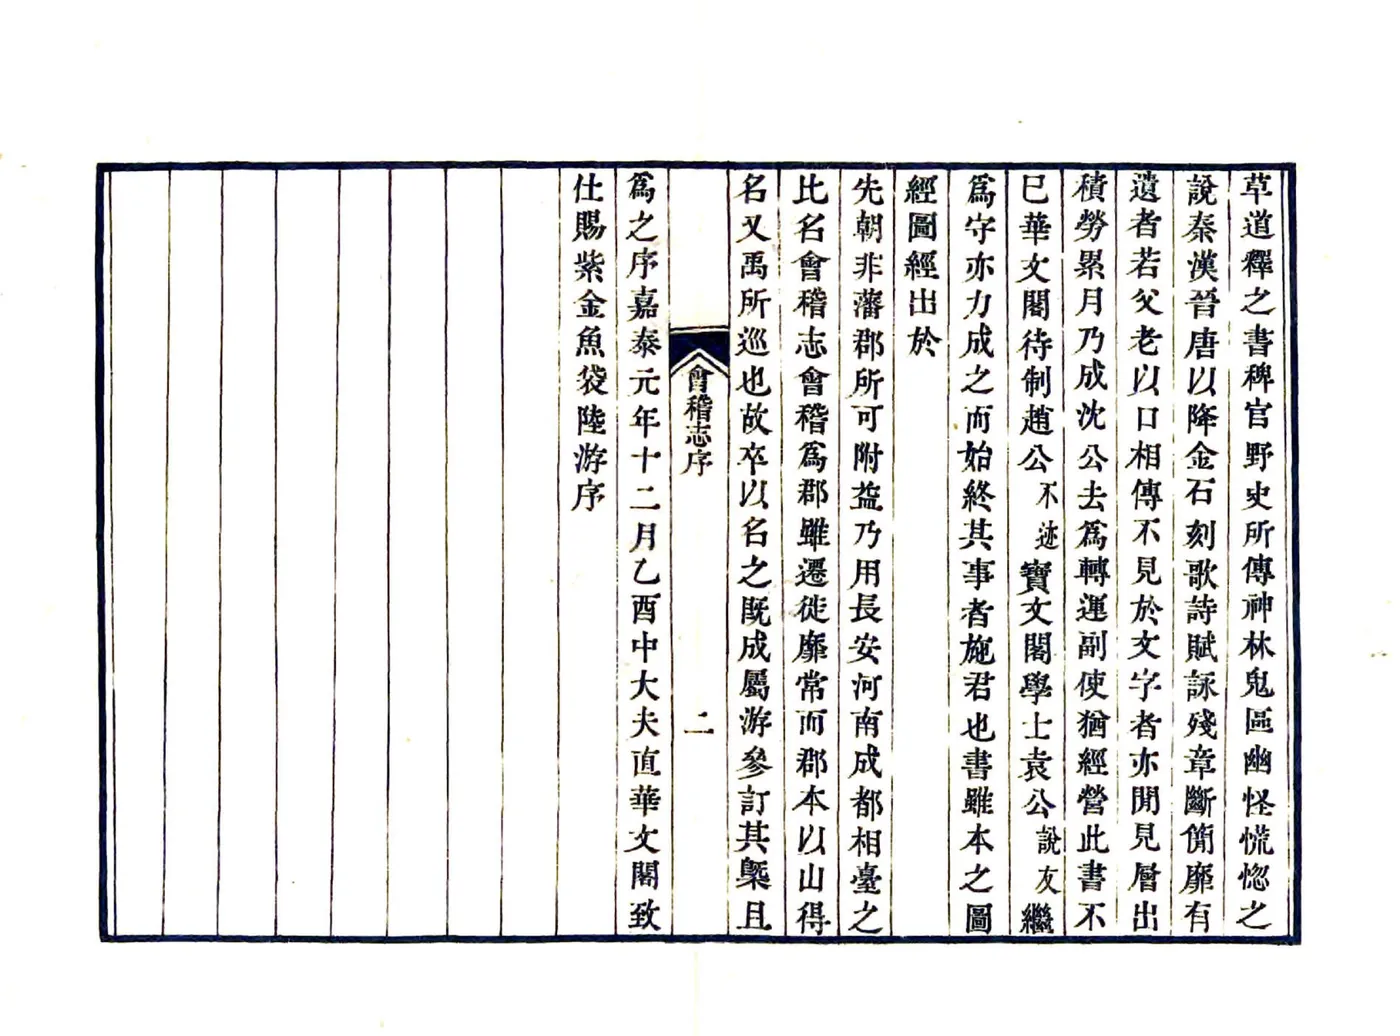 草道釋之書稗官野史所傳神林鬼區幽怪慌惚之
說秦漢晉唐以降金石刻歌詩賦詠殘章斷簡靡有
遺者若父老以口相傳不見於文字者亦閒見層出
積勞累月乃成沈公去爲轉運副使猶經營此書不
已華文閣待制趙公不迹寶文閣學士袁公說友繼
爲守亦力成之而始終其事者施君也書雖本之圖
經圖經出於
先朝非藩郡所可附益乃用長安河南成都相臺之
比名會稽志會稽爲郡雖遷徙靡常而郡本以山得
名又禹所巡也故卒以名之既成屬游參訂其槩且
會稽志序
二
爲之序嘉泰元年十二月乙酉中大夫直華文閣致
仕賜紫金魚袋陸游序